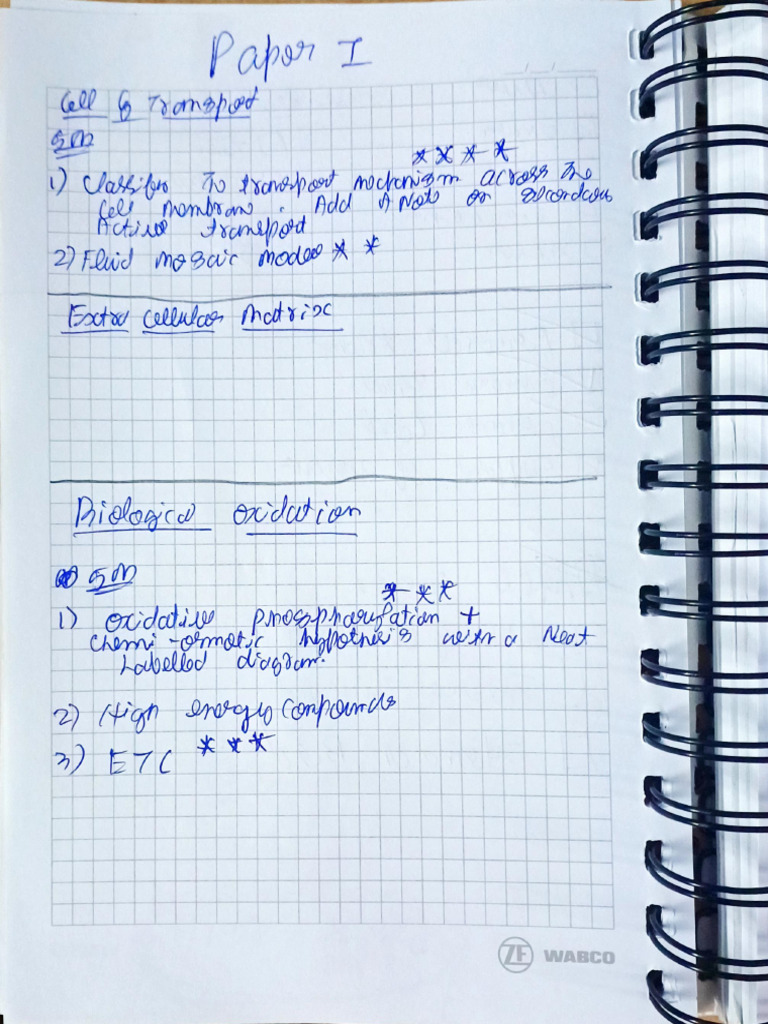 Paper I
Cell & Transport
5M
* * * *
1) Classify The transport mechanism across The
Cell membrane. Add A Note on secondary
Active transport
2) Fluid mosaic model * *
Extra Cellular Matrix
Biological oxidation
5M
* * *
1) oxidative phosphorylation +
Chemi-osmotic hypothesis with a Neat
Labelled diagram.
2) High energy compounds
3) ETC * * *
ZF WABCO